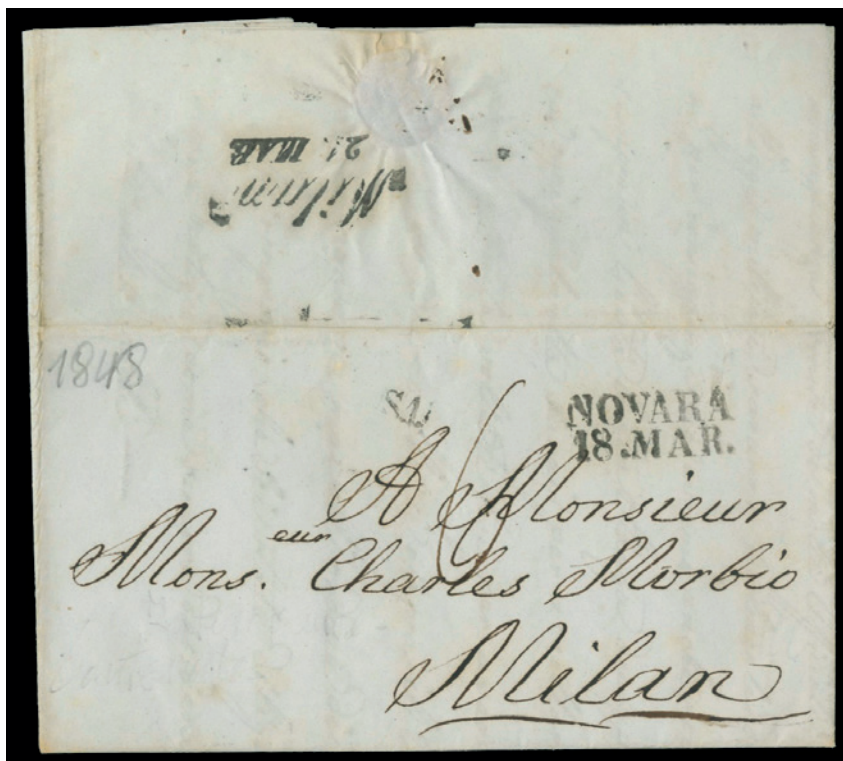 Milano
MAR
1848
NOVARA
18.MAR.
6
A Monsieur
Mons.eur Charles Morbio
Milan